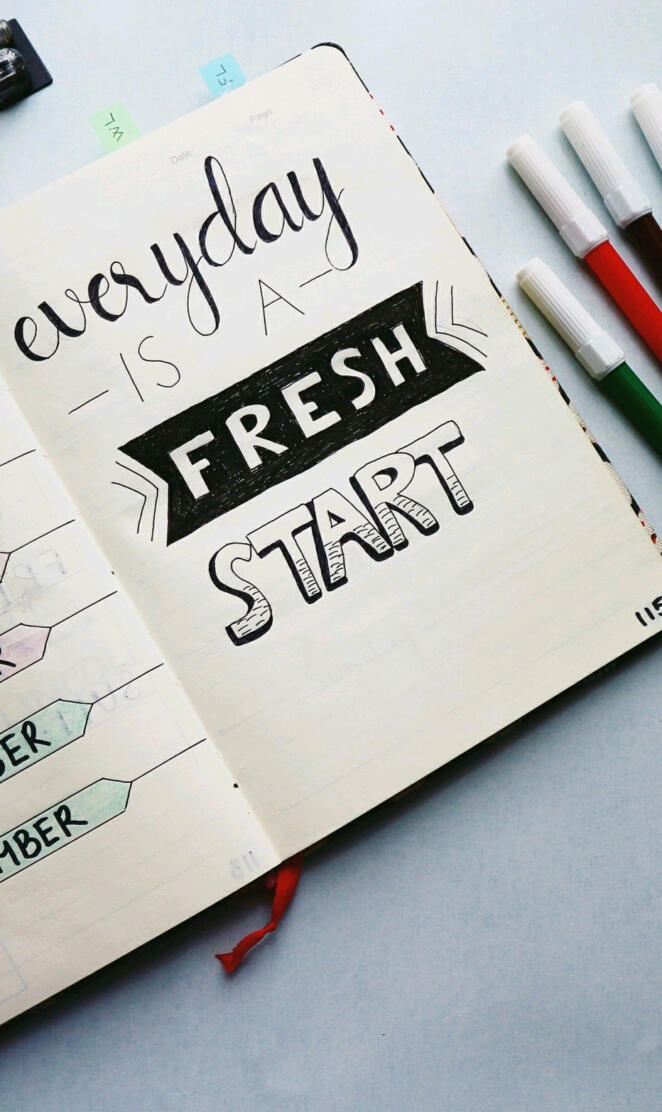 Date:
Page:
everyday
IS A
FRESH
START
115
BER
MBER
113